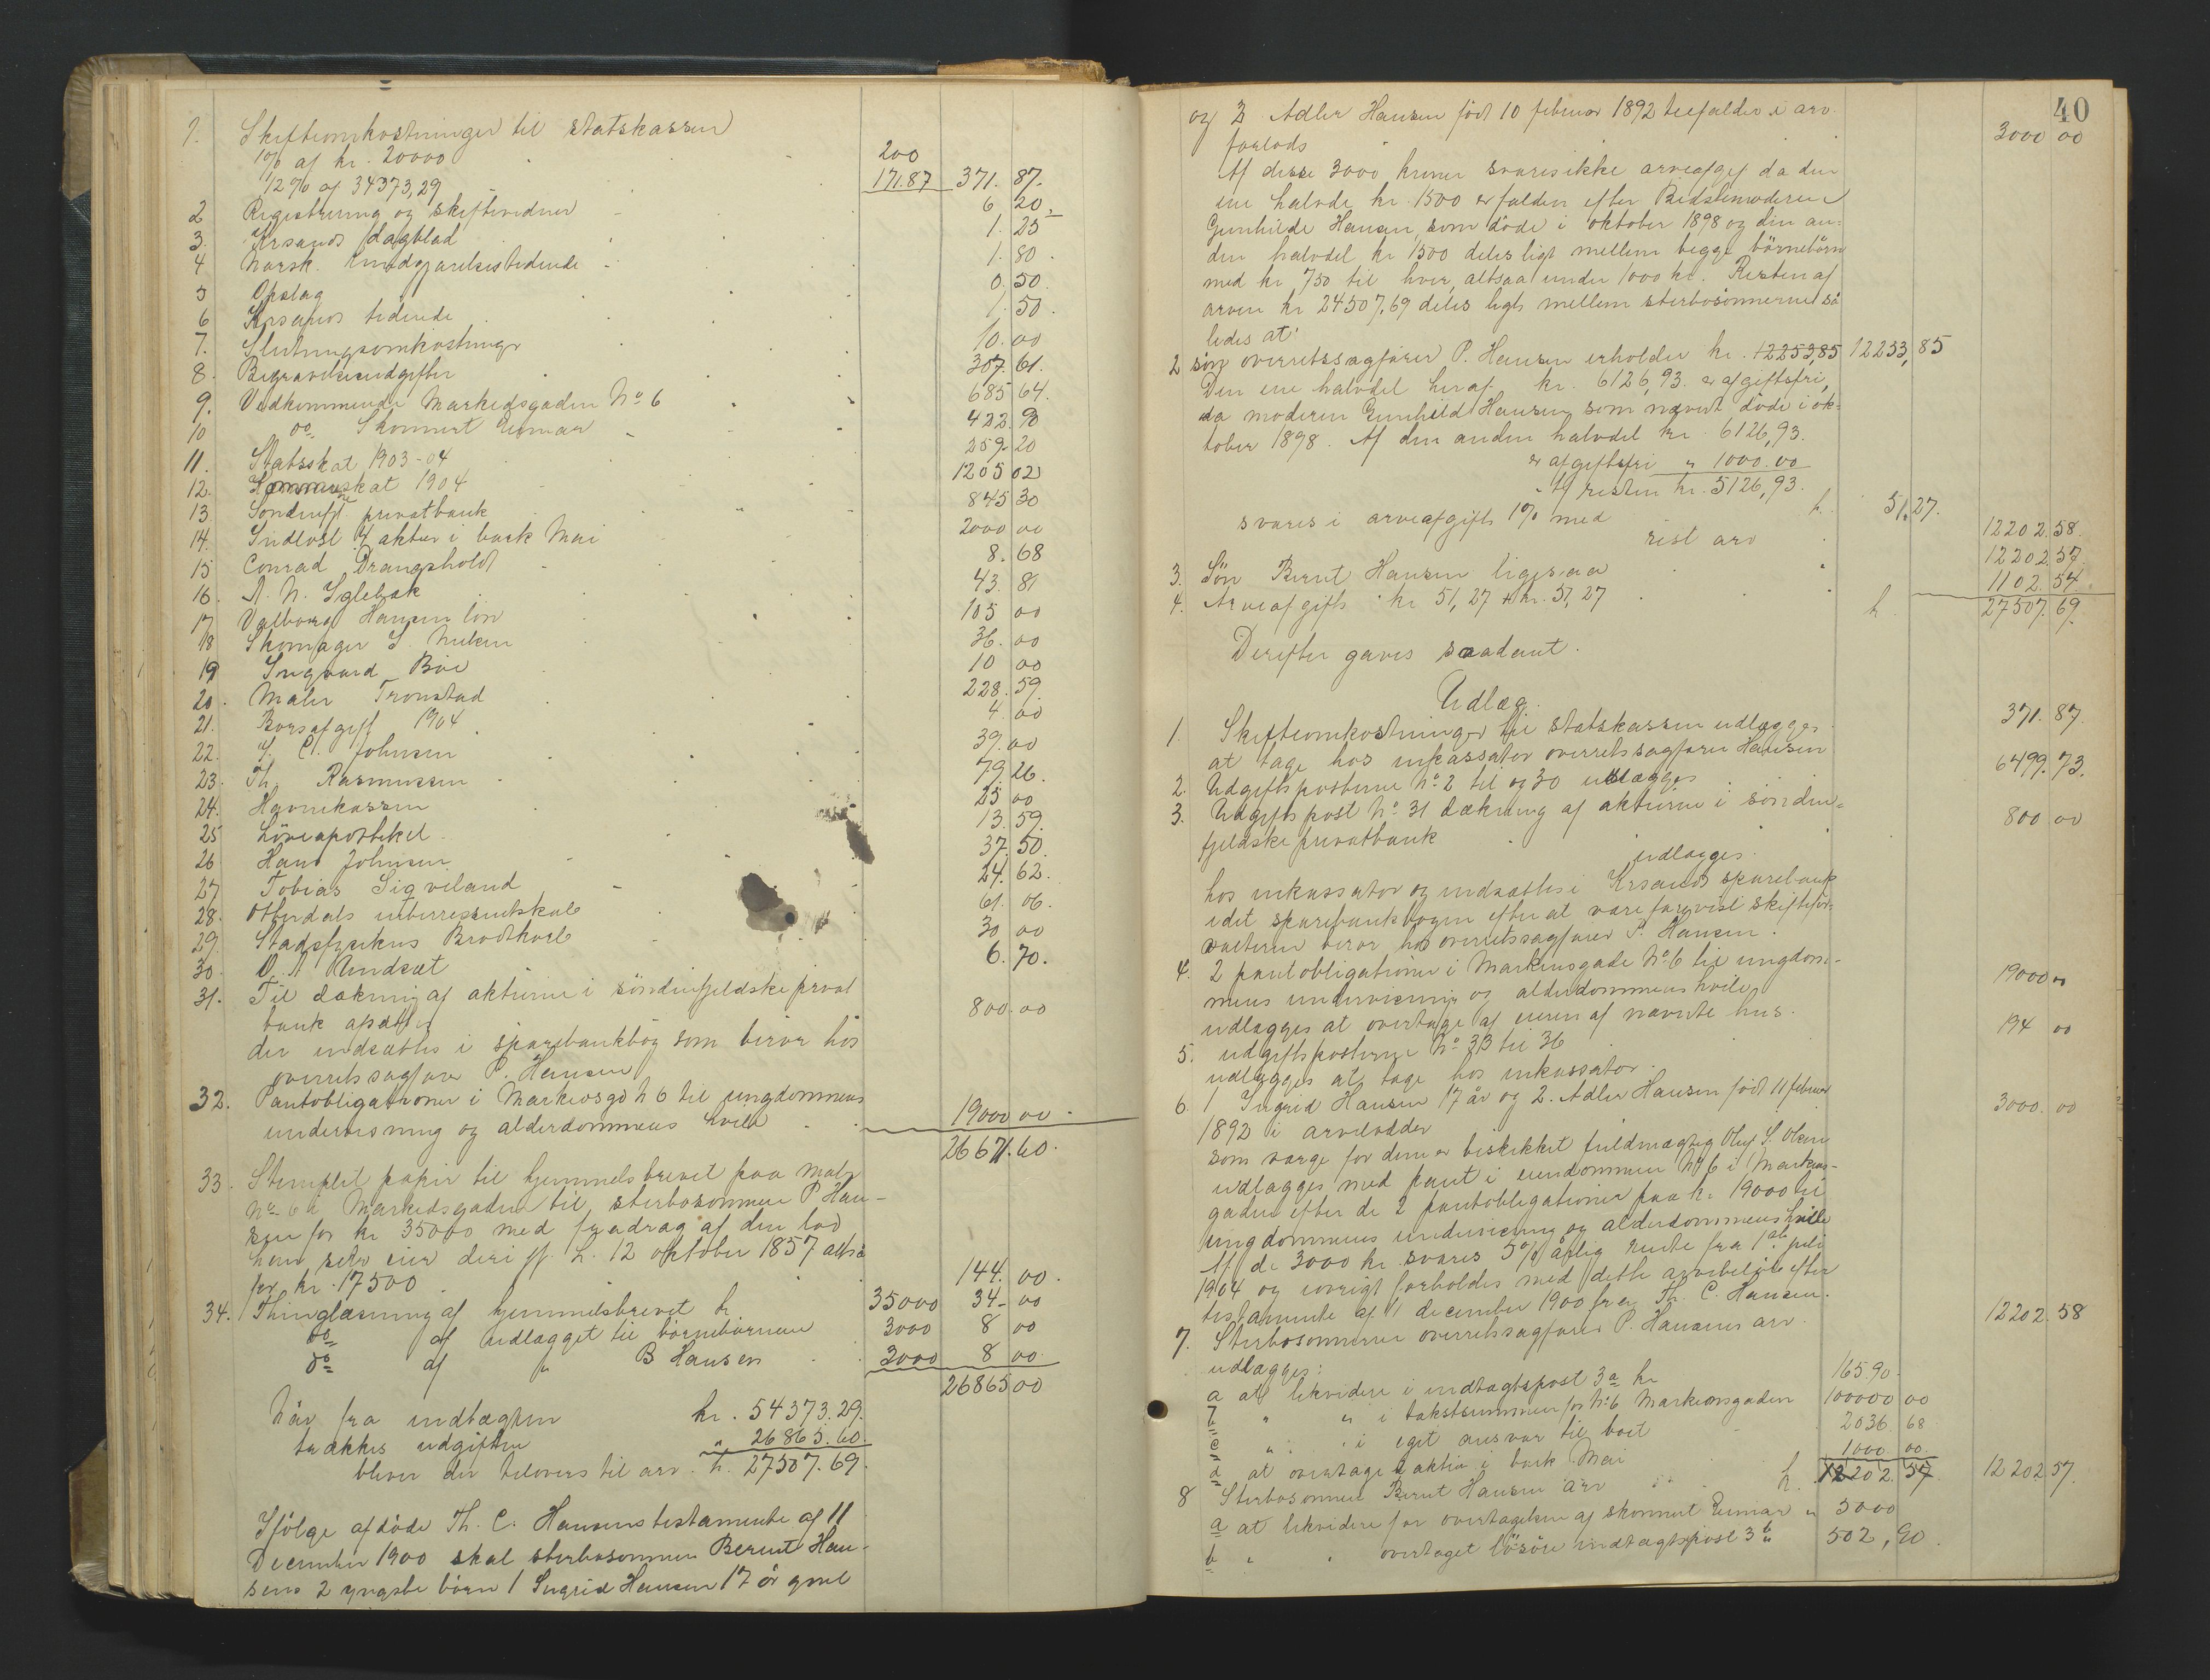 1. Skifteomkostninger til statskassen
1 % af kr. 20000 200
1/2 % af 34373,29 171.87 371. 87.
2 Registrering og skiftevidner 6 20.
3. Krsands dagblad 1. 25
4 Norsk kundgjørelsestidende 1. 80.
5 Opslag 0. 50.
6 Krsands tidende 1. 50.
7. Slutningsomkostninger 10. 00
8. Begravelsesudgifter 307. 61.
9. Vedkommende Markedsgaden No 6 685 64.
10 do Skonnert Eimar 422. 90
11. Statsskat 1903-04 259. 20
12. Kommuneskat 1904 1205 02
13. Söndenfj. privatbank 845 30
14. Indlöst 4 aktier i bark Mai 2000 00
15 Conrad Drangsholt 8. 68
16. A. N. Iglebæk 43. 81
17 Valborg Hansen lön 105 00
18 Skomager S. Nielsen 36. 00
19 Ingvard Böe 10 00
20. Maler Tronstad 228. 59.
21. Borsafgift 1904 4. 00
22. J. C. Johnsen 39. 00
23. Th. Rasmussen 79. 26.
24. Havnekassen 25 00
25 Löveapotheket 13. 59.
26 Hans Johnsen 37. 50.
27 Tobias Sigveland 24. 62.
28. Otterdals interessentskab 61. 06.
29 Stadsfysikus Brodtkorb 30 00
30. O. A. Undsæt 6. 70.
31. Til dækning af aktierne i söndenfjeldske privat
bank afsættes 800. 00
der indsættes i sparebankbog som beror hos
overretssagfører P. Hansen
32. Pantobligationer i Markensgd N 6 til ungdommens
undervisning og alderdommens hvile 19000 00.
26671. 60.
33. Stemplet papir til hjemmelsbrevet paa matr
No 6 i Markedsgaden til sterbosönnen P Han-
sen for kr 35000 med fradrag af den lod
han selv eier deri jf. L. 12 oktober 1857 altså
for kr. 17500 144. 00.
34. Thinglæsning af hjemmelsbrevet kr 35000 34- 00
do af udlægget til börnebörnene 3000 8 00
do af " B Hansen 3000 8 00
26865 00
Når fra indtægten kr. 54373. 29.
trækkes udgiften " 26865. 60.
bliver der tilovers til arv. kr. 27507. 69.
Ifölge afdöde Th. C. Hansens testamente af 11
December 1900 skal sterbosönnen Bernt Han-
sens 2 yngste börn 1 Ingrid Hansen 17 år gml
40
og 2 Adler Hansen född 10 februar 1892 tilfalder i arv
forlods 3000 00
Af disse 3000 kroner svares ikke arveafgift da den
ene halvde kr. 1500 er falden efter Bedstemoderen
Gunhilde Hansen, som döde i oktober 1898 og den an-
den halvdel kr 1500 deles ligt mellem begge börnebörn
med kr 750 til hver, altsaa under 1000 kr. Resten af
arven kr 24507,69 deles ligt mellem sterbosönnerne så
ledes at:
2 sön overretssagfører P. Hansen erholder kr. 12253,85 12253, 85
Den ene halvdel heraf kr. 6126,93. er afgiftsfri,
da moderen Gunhild Hansen som nævnt döde i ok-
tober 1898. Af den anden halvdel kr. 6126,93.
er afgiftsfri " 1000.00
Af resten kr. 5126,93.
svares i arveafgift 1 % med kr. 51. 27.
rest arv 12202. 58.
3. Sön Bernt Hansen ligesaa 12202. 57.
4. Arveafgift kr 51,27 + kr. 51,27 1102. 54.
kr 27507. 69.
Derefter gaves saadant.
Udlæg.
1. Skifteomkostninger til statskassen udlægges
at tage hos inkassator overretssagfører Hansen 371. 87.
2. Udgiftsposterne No 2 til og 30 udlægges 6499. 73.
3. Udgiftspost No 31 dækning af aktierne i sönden-
fjeldske privatbank 800 00
udlægges
hos inkassator og indsættes i Krsands sparebank
idet sparebankbogen efter at være forevist skiftefor-
valteren beror hos overretssagfører P. Hansen.
4. 2 pantobligationer i Markensgade No 6 til ungdom-
mens undervisning og alderdommens hvile 19000 00
udlægges at overtage af eieren af nævnte hus.
5. udgiftsposterne No 33 til 36 194 00
udlægges at tage hos inkassator.
6. 1 Ingrid Hansen 17 år og 2. Adler Hansen född 11 februar
1892 i arvelodder 3000. 00
som værge for dem er beskikket fuldmægtig Oluf S. Olsen
udlægges med pant i eiendommen No 6 i Markens-
gaden efter de 2 pantobligationer paa kr 19000 til
ungdommens undervisning og alderdommens hvile
Af de 3000 kr. svares 5 % årlig rente fra 1ste juli
1904 og iövrigt forholdes med dette arvebelöb efter
testamente af 11 december 1900 fra Th. C. Hansen.
7. Sterbosönnen overretssagfører P. Hansens arv 12202. 58
udlægges:
a at likvidere i indtægtspost 3 a kr 165.90
b " " i takstsummen for No 6 Markensgaden 10000 00
c " " i eget ansvar til boet 2036 68
d at overtage 2 aktier i bark Mai 1000. 00
kr. 12202. 57
8 Sterbosönnen Bernt Hansen arv 12202 57.
a at likvidere for overtagelsen af skonnert Eimar " 3000
b " " overtaget lösöre indtægtspost 3 b " 502, 90.